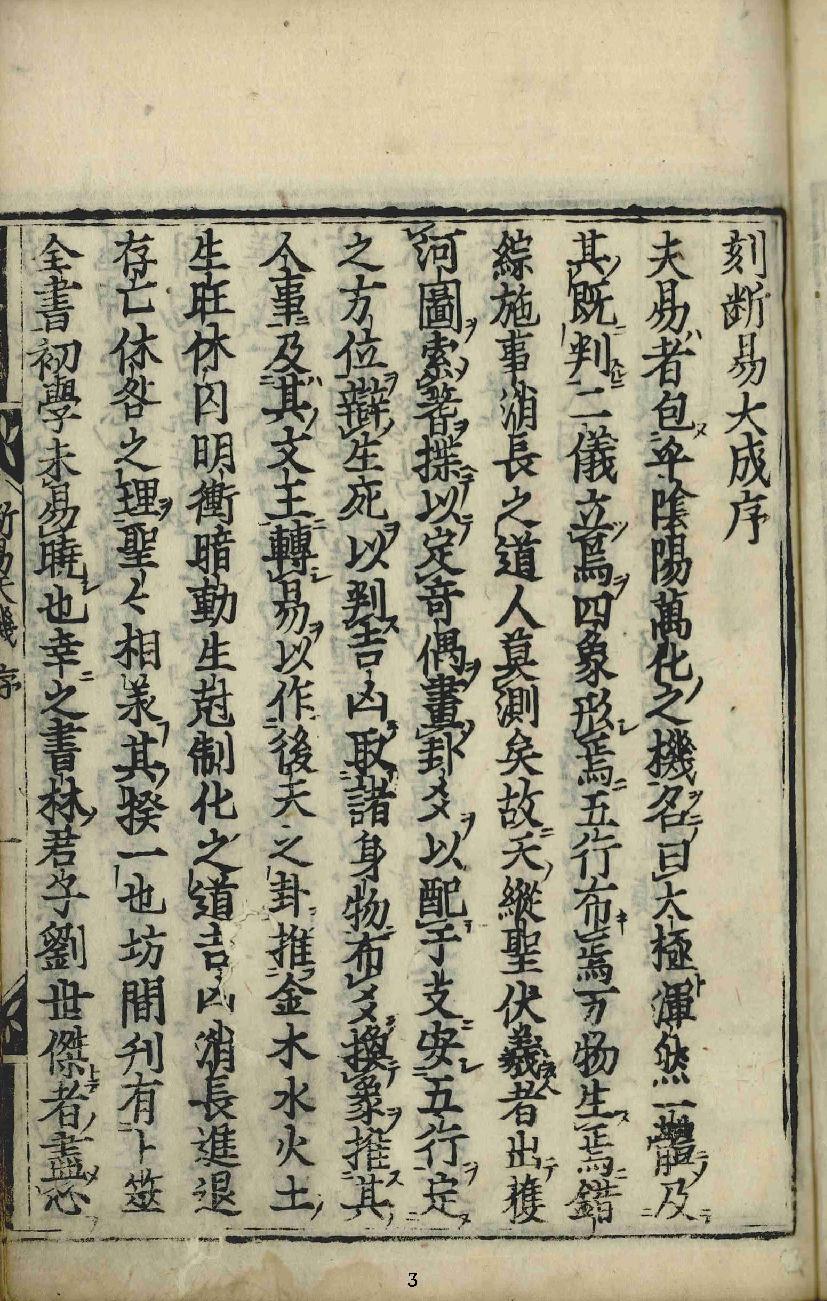 刻断易大成序
夫易者包牢陰陽萬化之機名曰太極渾然一軆及
其既判二儀立焉四象形焉五行布焉万物生焉錯
綜施事消長之道人莫測矣故天縱聖伏羲者出䕶
河圖索蓍揲以定奇偶畫卦爻以配干支安五行定
之方位辯生死以判吉凶取諸身物布爻換象推其
人事及其文王轉易以作後天之卦推金木水火土
生旺休囚明衝暗動生尅制化之道吉凶消長進退
存亡休咎之理聖〻相羕其揆一也坊間刋有卜筮
全書初學未易曉也幸之書林君子劉世傑者盡心
断易天機 序
一
3